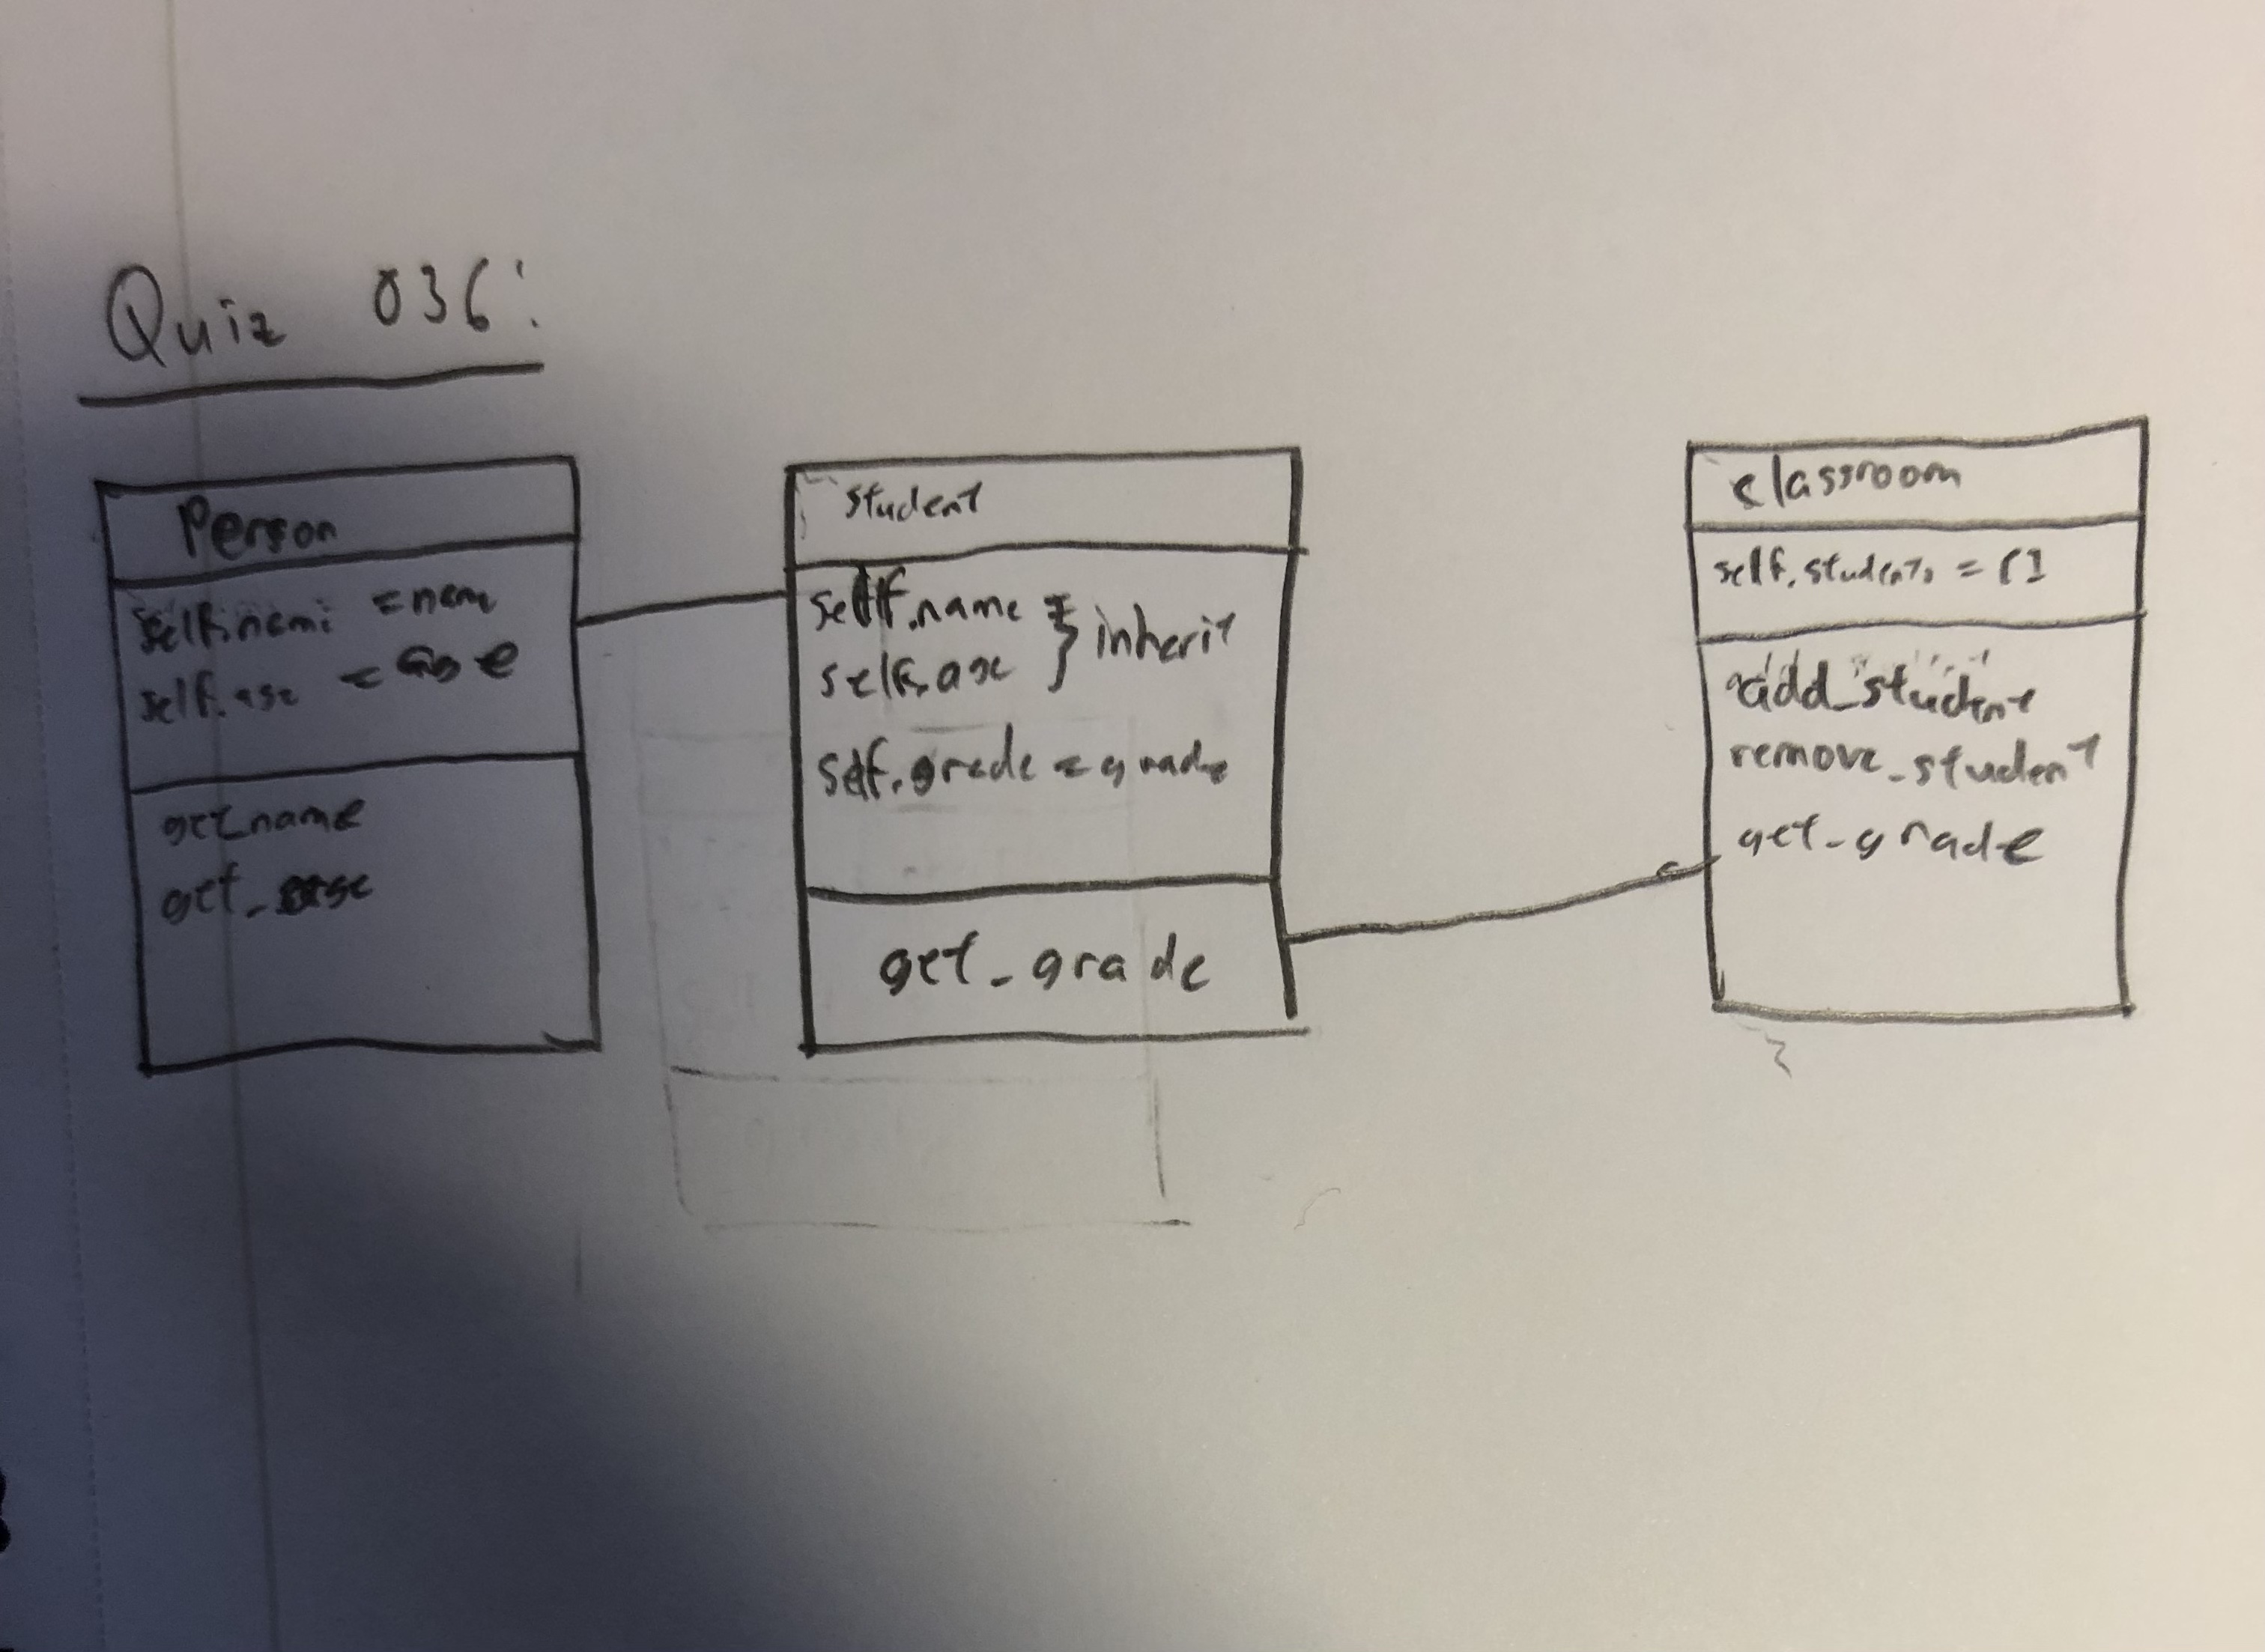 Quiz 036:
Person
self.name = nam
self.age = age
get_name
get_age
student
self.name } inherit
self.age
self.grade = grade
get_grade
classroom
self.students = []
add_student
remove_student
get_grade